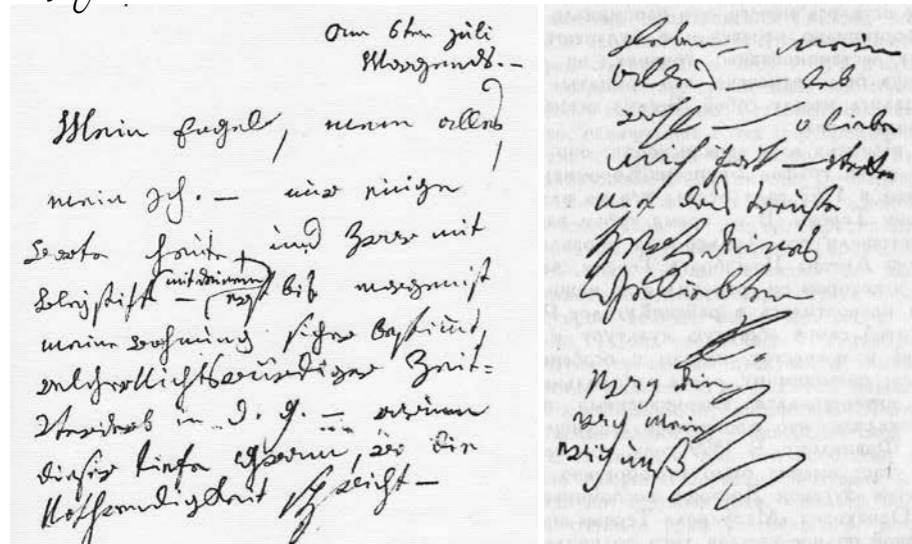 am 6ten Juli
Morgends. —
Mein Engel, mein alles,
mein Ich. — nur einige
Worte heute, und zwar mit
Bleystift — (mit deinem) erst bis morgen ist
meine wohnung sicher bestimmt,
welcher Nichtswürdiger Zeit-
Verderb in d. g. — warum
dieser tiefe Gram, wo die
Nothwendigkeit spricht —
Leben — mein
alles — leb
wohl — o liebe
mich fort — verken
nie das treuste
Herz deines
Geliebten
ewig dein
ewig mein
ewig unß